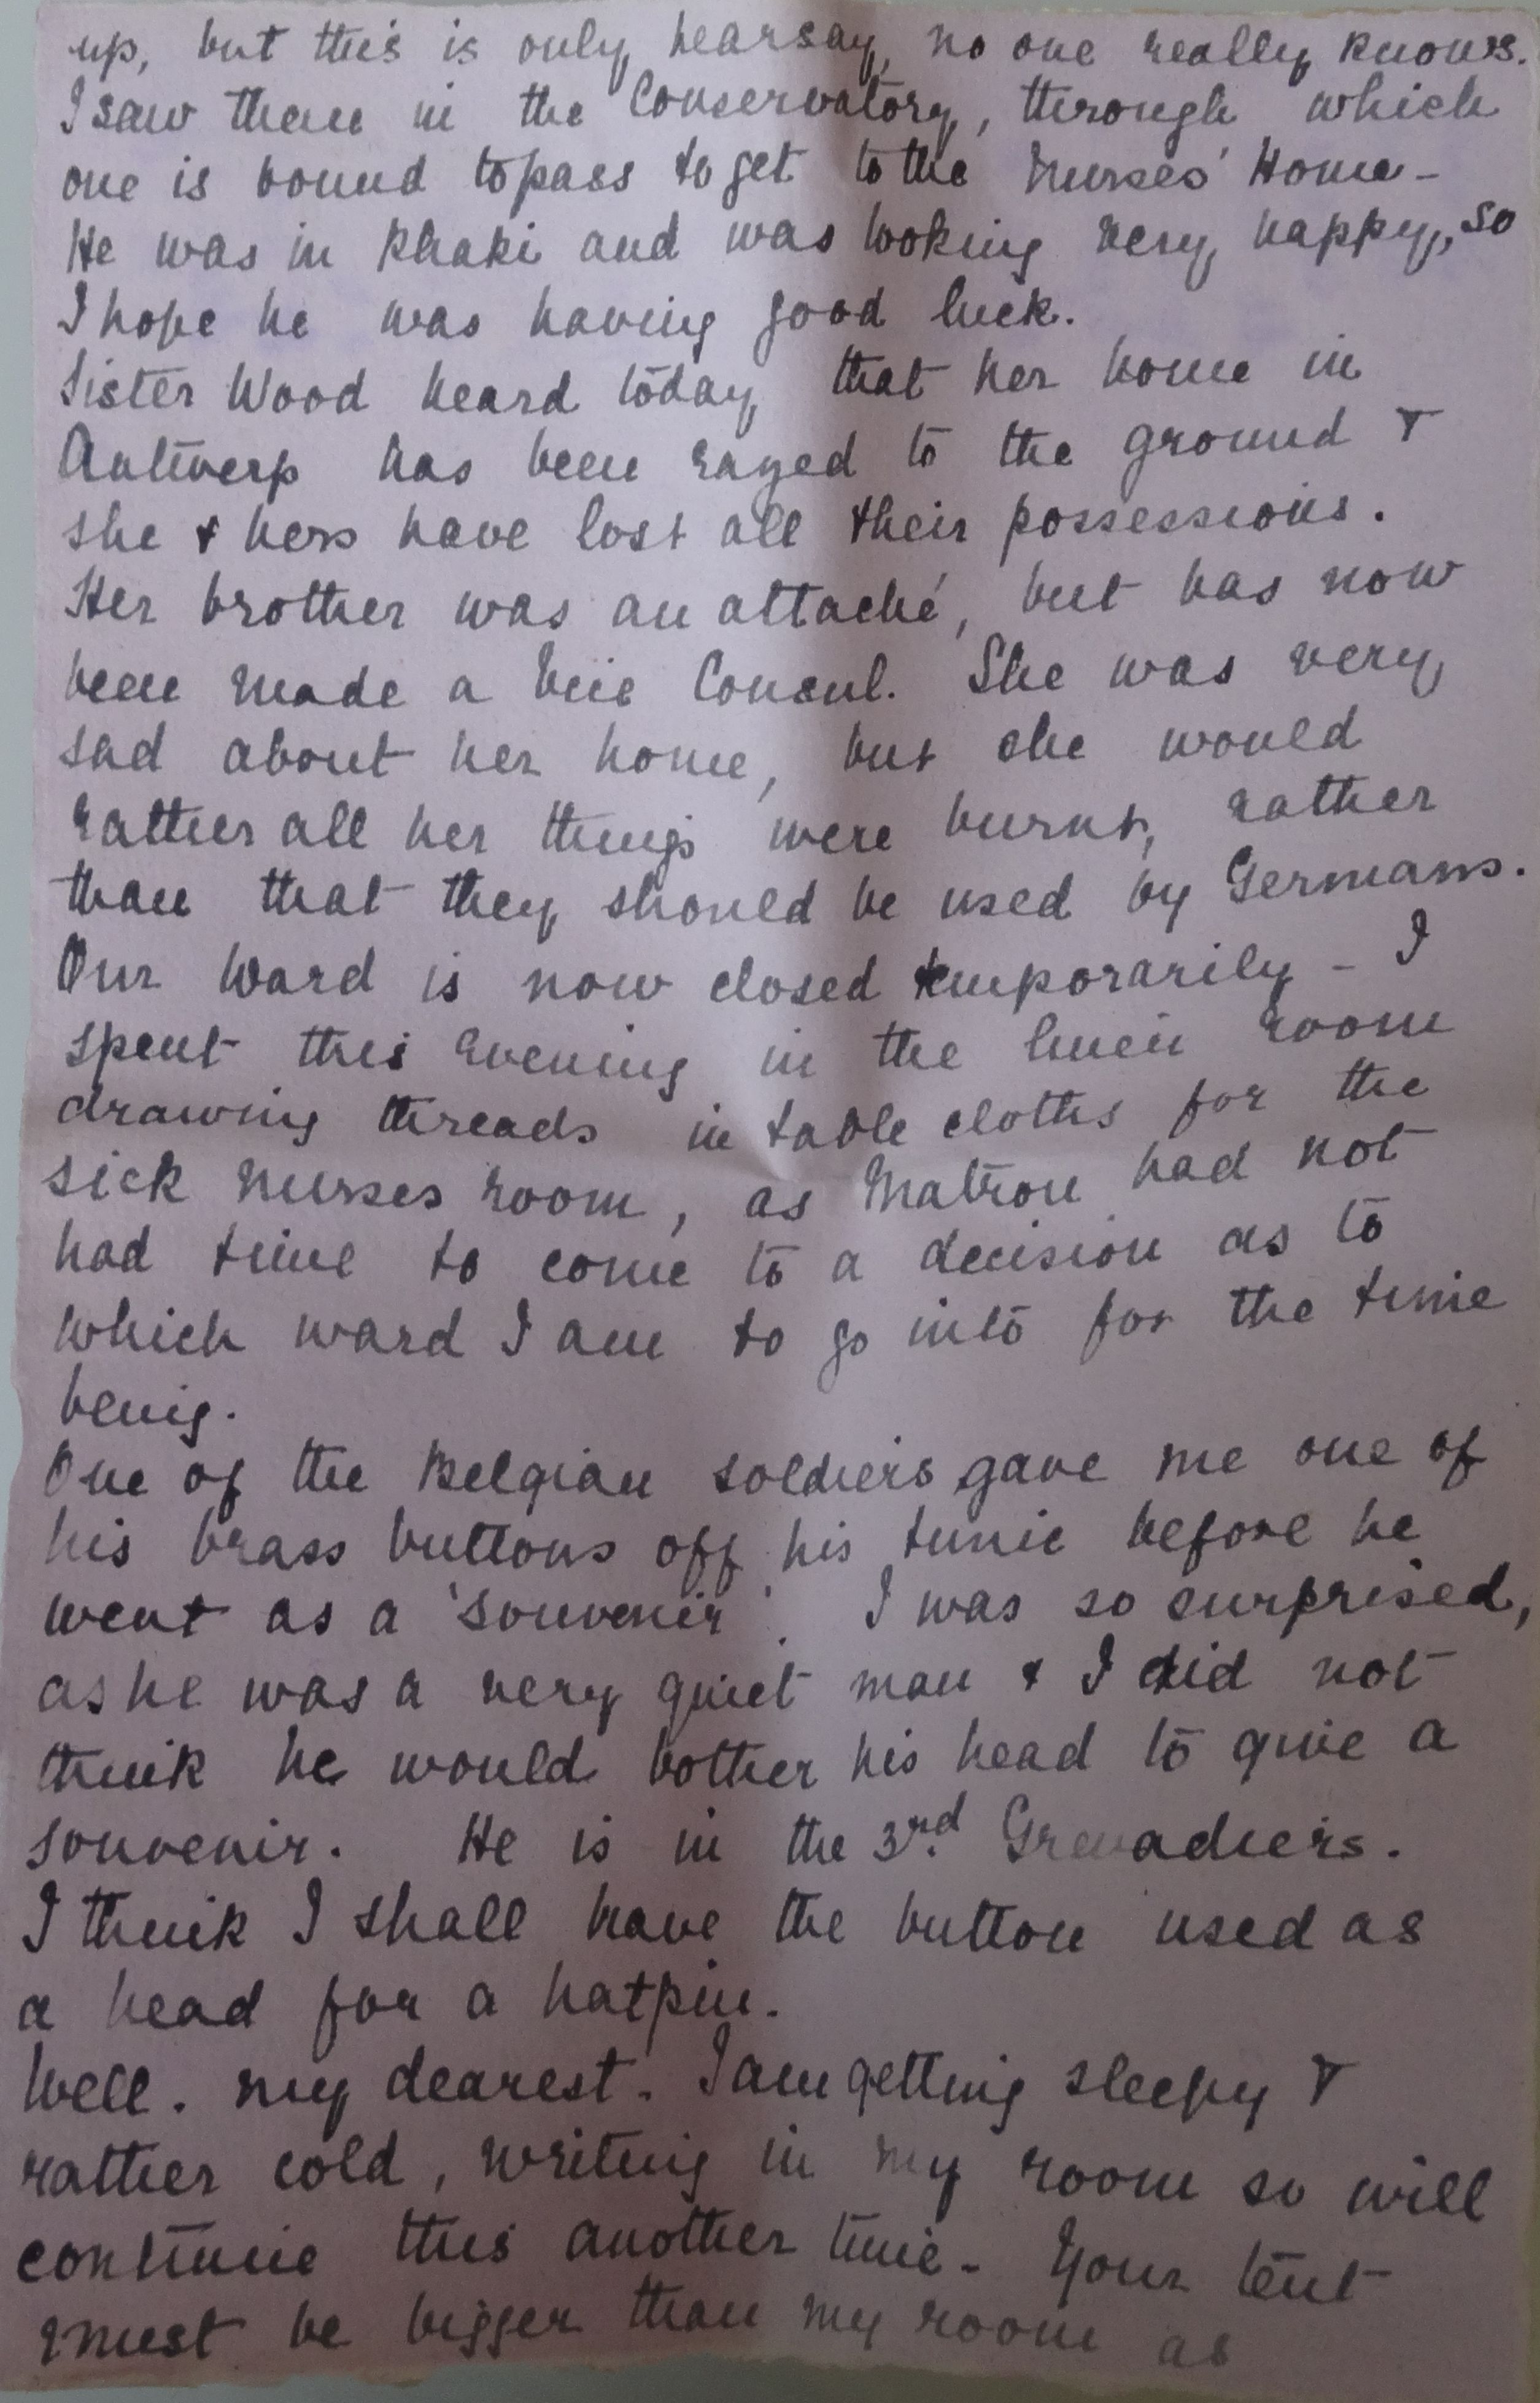 up, but this is only hearsay, no one really knows.
I saw them in the Conservatory, through which
one is bound to pass to get to the Nurses' Home -
He was in khaki and was looking very happy, so
I hope he was having good luck.
Sister Wood heard today that her home in
Antwerp has been razed to the ground &
she & hers have lost all their possessions.
Her brother was an attaché, but has now
been made a Vice Consul. She was very
sad about her home, but she would
rather all her things were burnt, rather
than that they should be used by Germans.
Our Ward is now closed temporarily - I
spent this evening in the linen room
drawing threads in table cloths for the
sick nurses room, as Matron had not
had time to come to a decision as to
which ward I am to go into for the time
being.
One of the Belgian soldiers gave me one of
his brass buttons off his tunic before he
went as a 'souvenir'. I was so surprised,
as he was a very quiet man & I did not
think he would bother his head to give a
souvenir. He is in the 3rd Grenadiers.
I think I shall have the button used as
a head for a hatpin.
Well. my dearest. I am getting sleepy &
rather cold, writing in my room so will
continue this another time - Your tent
must be bigger than my room as